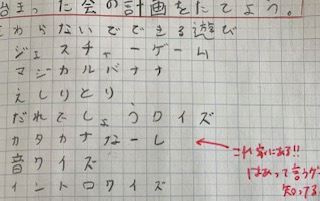 まった会の計画をたてよう。
わらないでできる遊び
ジェスチャーゲーム
マジカルバナナ
えしりとり
だれでしょうクイズ
カタカナなーし
音クイズ
イントロクイズ
これ 家にある!!
って言う
知ってる